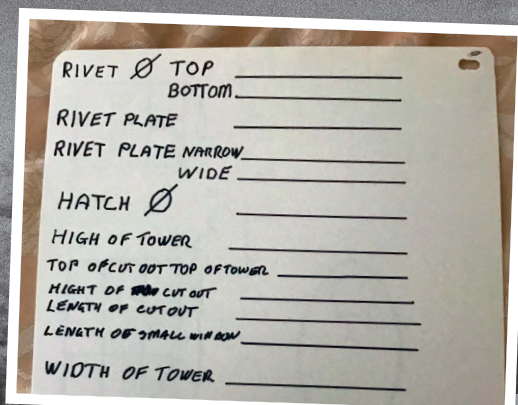 RIVET Ø TOP
BOTTOM
RIVET PLATE
RIVET PLATE NARROW
WIDE
HATCH Ø
HIGH OF TOWER
TOP OF CUT OUT TOP OF TOWER
HIGHT OF CUT OUT
LENGTH OF CUT OUT
LENGTH OF SMALL WINDOW
WIDTH OF TOWER